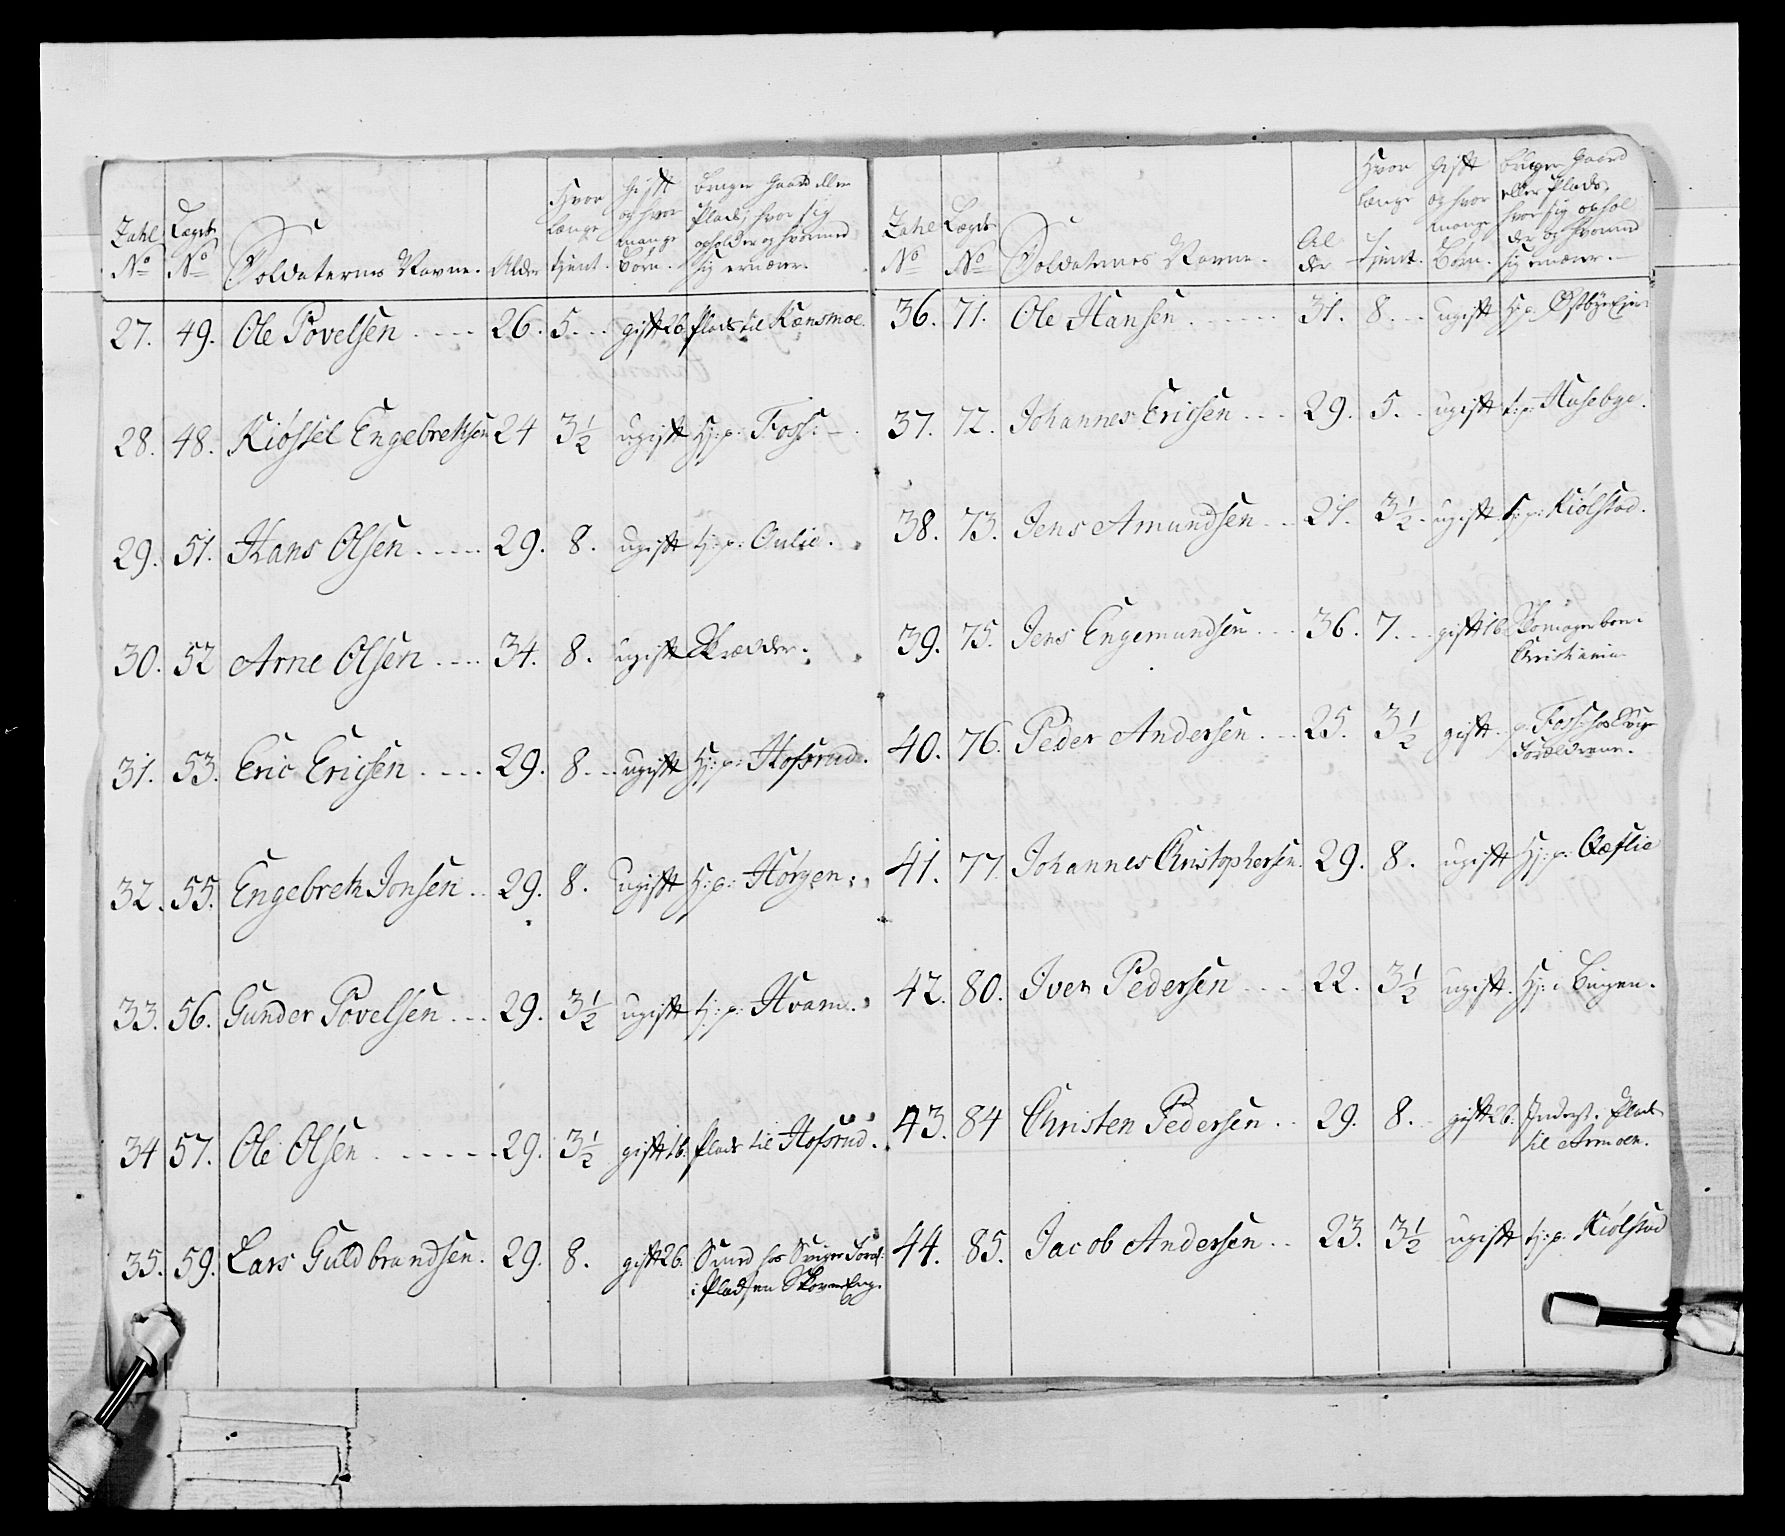 Zahl No | Lægds No | Soldaternes Navne. | Alder | Hvor længe tjent. | Gift og hvor mange Børn. | bruger Gaard eller Plads, hvor sig opholder og hvormed sig ernærer.
27. | 49. | Ole Povelsen | 26. | 5. | gift 2b. | Plads til Kensmoe.
28. | 48. | Kiøstel Engebretsen | 24 | 3½ | ugift | Hj: p: Foss:
29. | 51. | Hans Olsen | 29. | 8. | ugift | Hj: p: Oulie.
30. | 52 | Arne Olsen | 34. | 8. | ugift | Skrædder.
31. | 53. | Eric Ericsen | 29. | 8. | ugift | Hj: p: Hofsrud.
32. | 55. | Engebreth Jonsen | 29. | 8. | ugift | H: p: Hørgen.
33. | 56. | Gunder Povelsen | 29. | 3½ | ugift | Hj: p: Hvam.
34 | 57. | Ole Olsen | 29. | 3½ | gift 1b. | Plads til Hofsrud.
35. | 59. | Lars Guldbrandsen. | 29. | 8. | gift 2b. | hos Sviger Foræl:
i Pladsen
Zahl No | Lægds No | Soldaternes Navne. | Alder | Hvor længe tjent. | Gift og hvor mange Børn. | bruger Gaard eller Plads, hvor sig opholder og hvormed sig ernærer.
36. | 71. | Ole Hansen | 31. | 8. | ugift | Hj: p:
37. | 72. | Johannes Ericsen | 29. | 5. | ugift | Hj: p: Husebye.
38. | 73. | Jens Amundsen | 21. | 3½ | ugift | Hj: p: Kiølstad.
39. | 75. | Jens Engemundsen | 36. | 7. | gift 1b. | Skomager
Christiania
40. | 76. | Peder Andersen | 25. | 3½ | gift | p: Foss: hos Sviger
Forældrene.
41. | 77. | Johannes Christophersen. | 29. | 8. | ugift | Hj: p: Ræflie
42. | 80. | Iver Pedersen | 22. | 3½ | ugift. | Hj: i Bingen.
43. | 84 | Christen Pedersen | 29. | 8. | gift 2b. | Inderst. Plads
til Armoen.
44. | 85. | Jacob Andersen | 23. | 3½ | ugift | Hj: p: Kiølstad